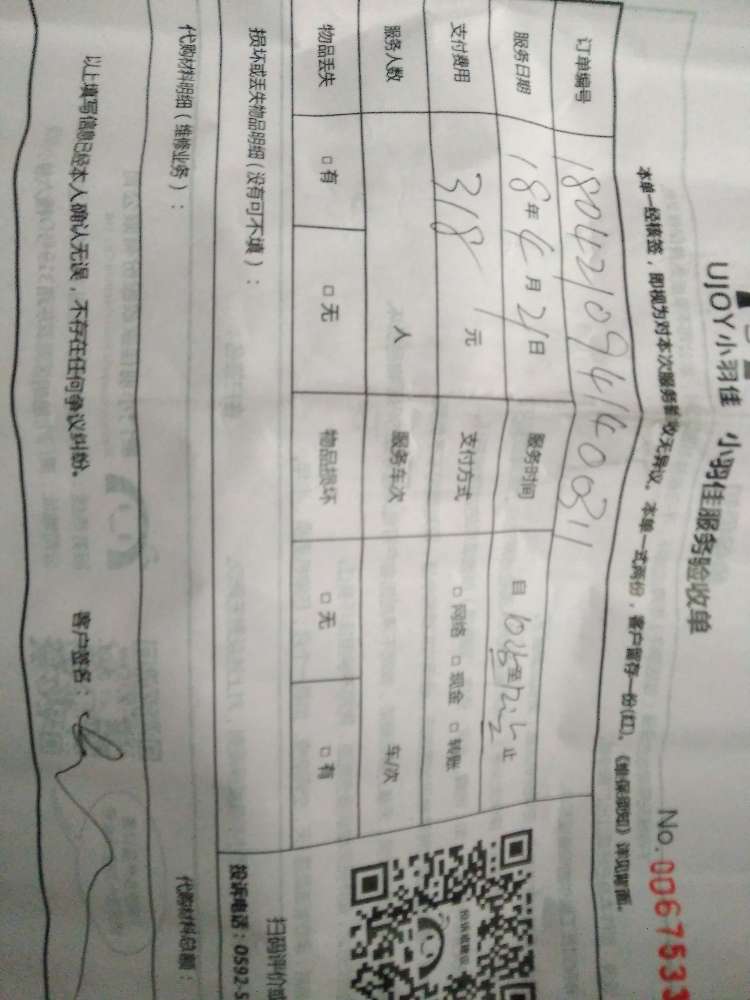 UJOY小羽佳 小羽佳服务验收单
No.0067533
本单一经核签，即视为对本次服务验收无异议。本单一式两份，客户留存一份(红)。《维保须知》详见背面。
订单编号 180421094140031
服务日期 18年4月21日 服务时间 自 至 止
支付费用 318元 支付方式 □网络 □现金 □转账
服务人数 人 服务车次 车/次
物品丢失 □有 □无 物品损坏 □无 □有
损坏或丢失物品明细（没有可不填）：
扫码评价或
投诉电话：0592-5
代购材料明细（维修业务）： 代购材料总额：
以上填写信息已经本人确认无误，不存在任何争议纠纷。 客户签名：